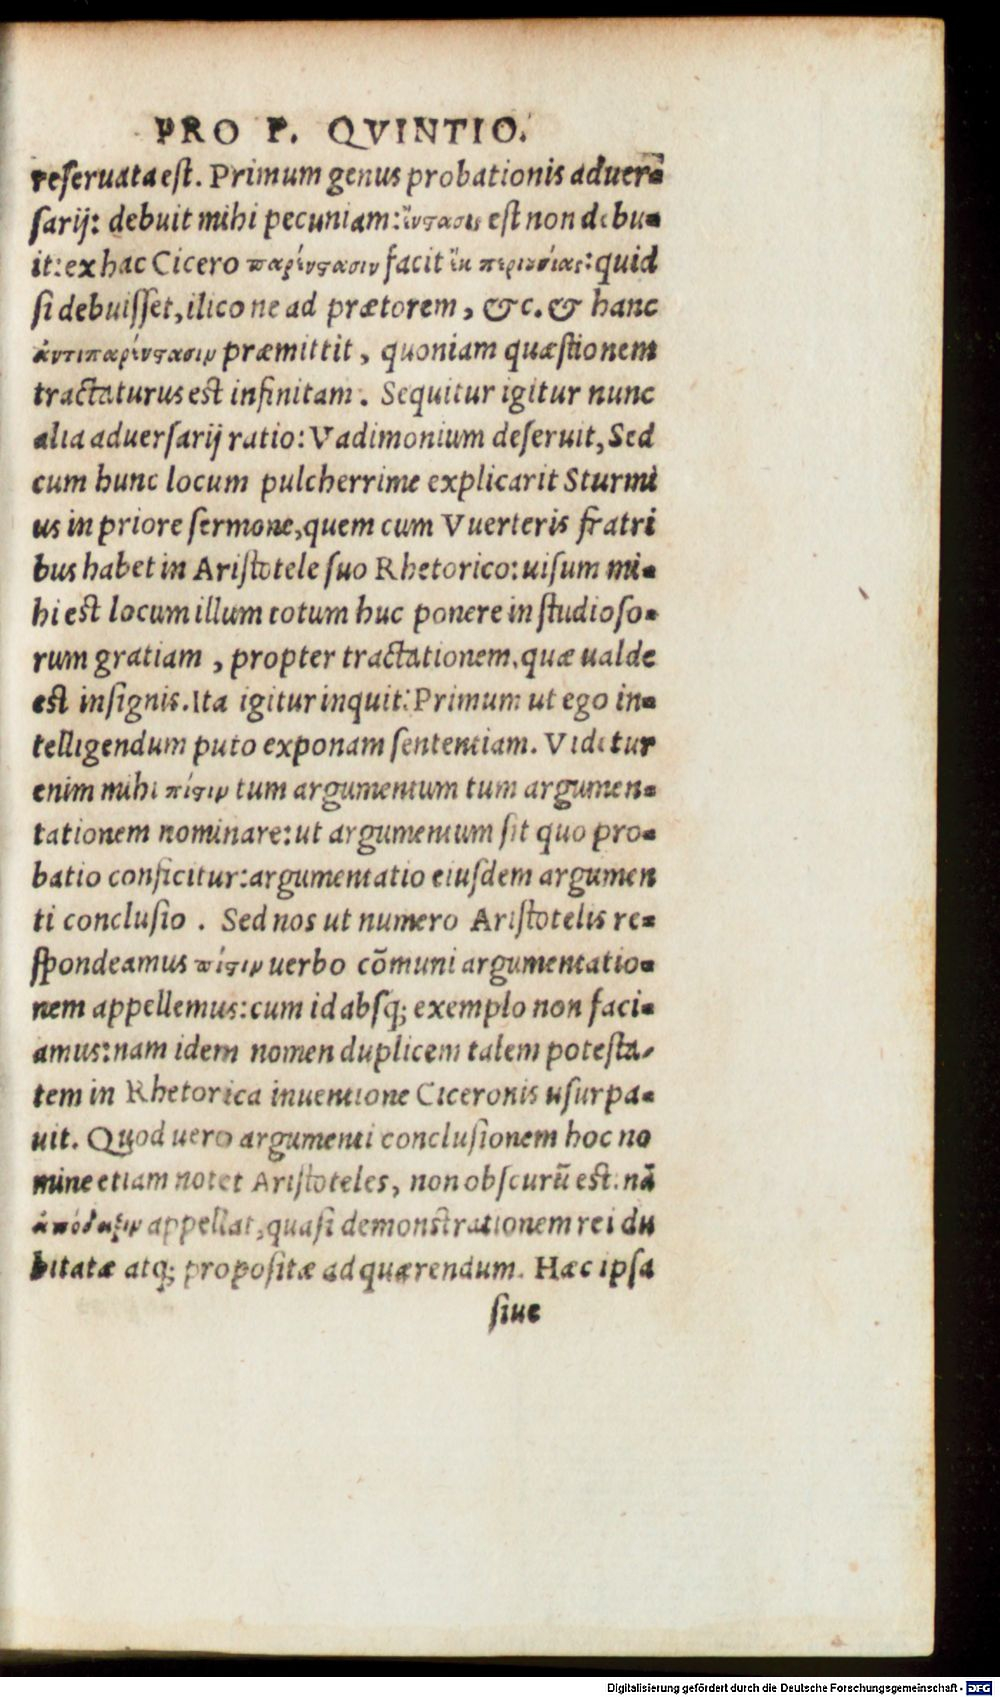 PRO P. QVINTIO.
reseruata est. Primum genus probationis aduer-
sarij: debuit mihi pecuniam: ἔνστασις est non debu-
it: ex hac Cicero παρένστασιν facit ἐκ περιουσίας: quid
si debuisset, ilicone ad prætorem, &c. & hanc
ἀντιπαρένστασιν præmittit, quoniam quæstionem
tractaturus est infinitam. Sequitur igitur nunc
alia aduersarij ratio: Vadimonium deseruit, Sed
cum hunc locum pulcherrime explicarit Sturmi
us in priore sermone, quem cum Vuerteris fratri
bus habet in Aristotele suo Rhetorico: uisum mi-
hi est locum illum totum huc ponere in studioso-
rum gratiam, propter tractationem, quæ ualde
est insignis. Ita igitur inquit: Primum ut ego in-
telligendum puto exponam sententiam. Videtur
enim mihi πίστιν tum argumentum tum argumen-
tationem nominare: ut argumentum sit quo pro-
batio conficitur: argumentatio eiusdem argumen
ti conclusio. Sed nos ut numero Aristotelis re-
spondeamus πίστιν uerbo cõmuni argumentatio-
nem appellemus: cum id absq; exemplo non faci-
amus: nam idem nomen duplicem talem potesta-
tem in Rhetorica inuentione Ciceronis usurpa-
uit. Quod uero argumenti conclusionem hoc no
mine etiam notet Aristoteles, non obscurũ est: nã
ἀπόδειξιν appellat, quasi demonstrationem rei du
bitatæ atq; propositæ ad quærendum. Hæc ipsa
siue
Digitalisierung gefördert durch die Deutsche Forschungsgemeinschaft - DFG